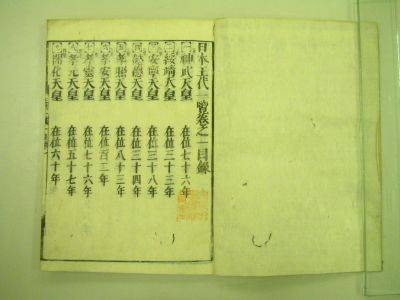 日本王代一覧巻之一目録
一 神武天皇 在位七十六年
二 綏靖天皇 在位三十三年
三 安寧天皇 在位三十八年
四 懿徳天皇 在位三十四年
五 孝昭天皇 在位八十三年
六 孝安天皇 在位百二年
七 孝霊天皇 在位七十六年
八 孝元天皇 在位五十七年
九 開化天皇 在位六十年